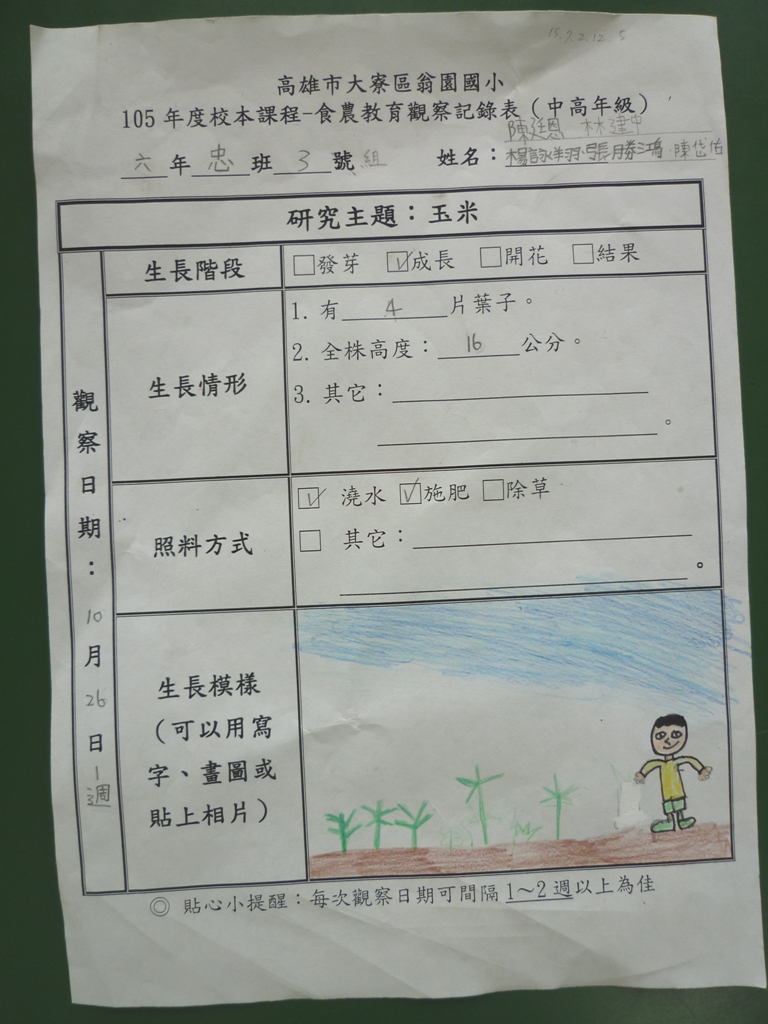 高雄市大寮區翁園國小
105 年度校本課程-食農教育觀察記錄表（中高年級）
陳廷恩 林建中
六年忠班3號組 姓名：楊詠羽 張勝鴻 陳岱佑
研究主題：玉米
觀察日期：10月26日 1週
生長階段 □發芽 ☑成長 □開花 □結果
生長情形
1. 有 4 片葉子。
2. 全株高度： 16 公分。
3. 其它：
。
照料方式
☑ 澆水 ☑施肥 □除草
□ 其它：
。
生長模樣
（可以用寫
字、畫圖或
貼上相片）
◎ 貼心小提醒：每次觀察日期可間隔 1～2 週以上為佳